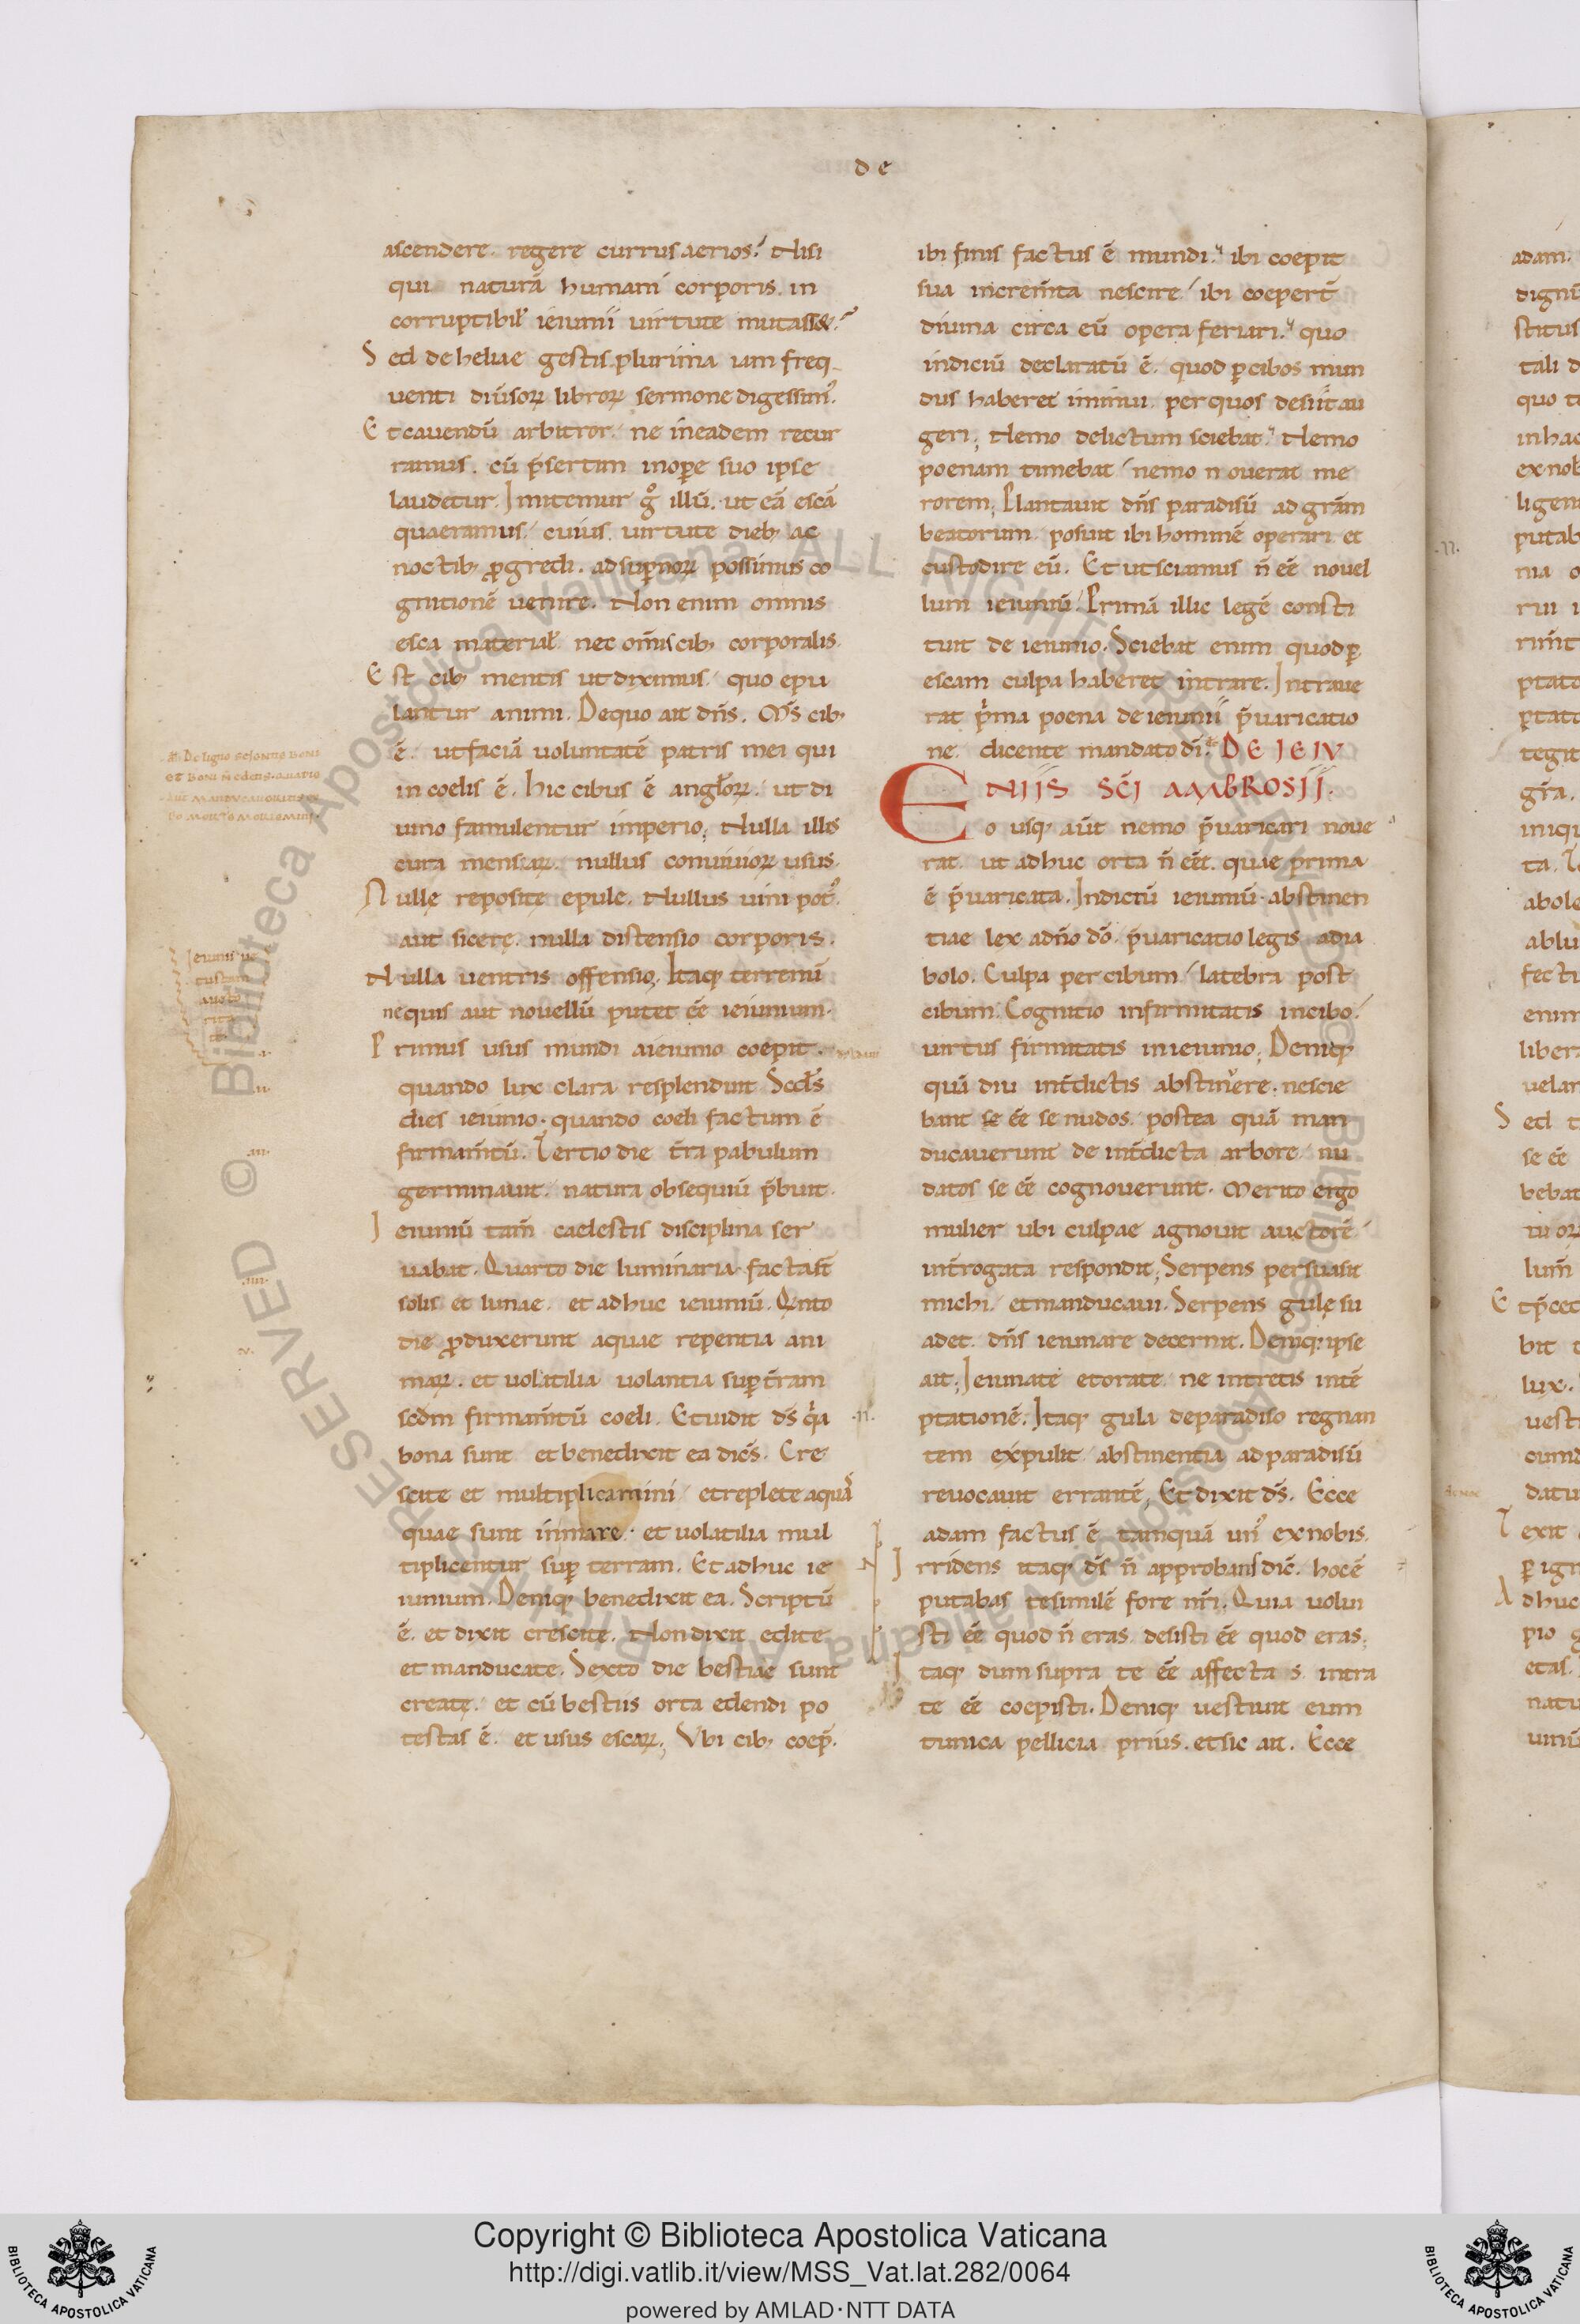 de
ascendere. regere currus aerios? Nisi
qui naturā humani corporis in
corruptibił ieiunii uirtute mutass&?
Sed de heliae gestis plurima iam freq
uenti diũsoꝝ libroꝝ sermone digessim᾽.
Et cauendū arbitror. ne in eadem recur
ramus. cū p̄sertim in oꝑe suo ipse
laudetur. Imitemur gͦ illū. ut eā escā
quaeramus. cuius uirtute dieb; ac
noctib; ꝓgredi. ad suꝑnoꝝ possimus co
gnitionē uenire. Non enim omnis
esca materiał. nec om̄is cib; corporalis.
Est cib; mentis ut diximus. quo epu
lantur animi. De quo ait dn̄s. Ms̄ cib;
ē. ut faciā uoluntatē patris mei qui
in coelis ē. hic cibus ē angłoꝝ. ut di
uino famulentur imperio; Nulla illis
cura mensaꝝ. nullus conuiuioꝝ usus.
Nullę repositę epulę. Nullus uini pot᾽.
aut sicerę. nulla distensio corporis.
Nulla uentris offensio. Itaq; terrenū
nequis aut nouellū putet ēē ieiunium.
Primus usus mundi a ieiunio coepit.
quando lux clara resplenduit Scd̄s
dies ieiunio. quando coeli factum ē
firmam̄tū. Tertio die t̄ra pabulum
germinauit. natura obsequiū p̄buit.
Ieiuniū tam̄ caelestis disciplina ser
uabat. Quarto die luminaria facta st̄
solis et lunae. et adhuc ieiuniū. Qinto
die ꝓduxerunt aquae repentia ani
maꝝ. et uolatilia uolantia suꝑ t̄ram
scdm firmam̄tū coeli. Et uidit ds̄ qa
bona sunt et benedixit ea dicēs. Cre
scite et multiplicamini et replete aquā
quae sunt in mare. et uolatilia mul
tiplicentur suꝑ terram. Et adhuc ie
iunium. Deniq; benedixit ea. Scriptū
ē. et dixit crescite. Non dixit edite
et manducate. Sexto die bestiae sunt
creatę. et cū bestiis orta edendi po
testas ē. et usus escaꝝ; Vbi cib; coep̄.
ibi finis factus ē mundi. ibi coepit
sua increm̄ta nescire. ibi coepert̄
diuina circa eū opera feriari. quo
indiciū declaratū ē. quod ꝑ cibos mun
dus haberet iminui. per quos desiit au
geri; Nemo delictum sciebat. Nemo
poenam timebat. nemo nouerat me
rorem; Plantauit dn̄s paradisū ad grām
beatorum. posuit ibi hominē operari et
custodire eū. Et ut sciamus n̄ ēē nouel
lum ieiuniū. Primā illic legē consti
tuit de ieiunio. Sciebat enim quod ꝑ
escam culpa haberet intrare. Intraue
rat p̄ma poena de ieiunii p̄uaricatio
ne. dicente mandato dī. DE IEIV
NIIS SCI AMBROSII.
Eo usq; aūt nemo p̄uaricari noue
rat. ut adhuc orta n̄ eēt. quae prima
ē p̄uaricata. Indictū ieiuniū. abstinen
tiae lex a dn̄o dō. p̄uaricatio legis a dia
bolo. Culpa per cibum. latebra post
cibum. Cognitio infirmitatis in cibo.
uirtus firmitatis in ieiunio; Deniq;
quā diu int̄dictis abstinuere. nescie
bant se ēē se nudos. postea quā man
ducauerunt de int̄dicta arbore. nu
datos se ēē cognouerunt. Merito ergo
mulier ubi culpae agnouit auctorē
int̄rogata respondit; Serpens persuasit
michi et manducaui. Serpens gulę su
adet. dn̄s ieiunare decernit. Deniq; ipse
ait; Ieiunate et orate ne intretis intē
ptationē. Itaq; gula de paradiso regnan
tem expulit abstinentia ad paradisū
reuocauit errantē; Et dixit ds̄. Ecce
adam factus ē tamquā un᾽ ex nobis.
Irridens itaq; ds̄ n̄ approbans dic̄. hoc ē
putabas te similē fore nr̄i. Quia uolui
sti ēē quod n̄ eras. desisti ēē quod eras;
Itaq; dum supra te ēē affectas. intra
te ēē coepisti. Deniq; uestiuit eum
tunica pellicia prius. et sic ait. Ecce
Copyright © Biblioteca Apostolica Vaticana
http://digi.vatlib.it/view/MSS_Vat.lat.282/0064
powered by AMLAD·NTT DATA